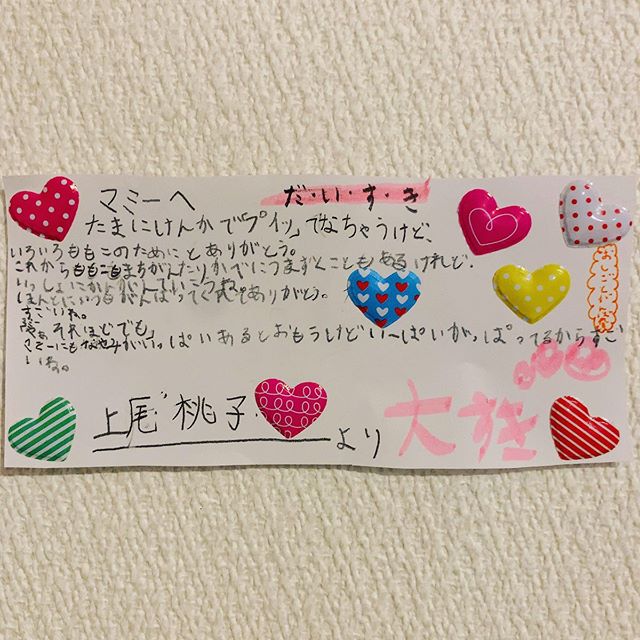 マミーへ
だ・い・す・き
たまにけんかで「プイッ」てなちゃうけど、
いろいろももこのためにとありがとう。
これからももこもまちがえたりかべにつまずくこともあるけれど、
いっしょにかんがえていこうね。
ほんとにいつもがんばってくれてありがとう。
すごいね。
それほどでも、
マミーにもなやみがいっぱいあるとおもうけどい〜ぱいがっぱってるからすご
いね。
上尾 桃子
より
大すき